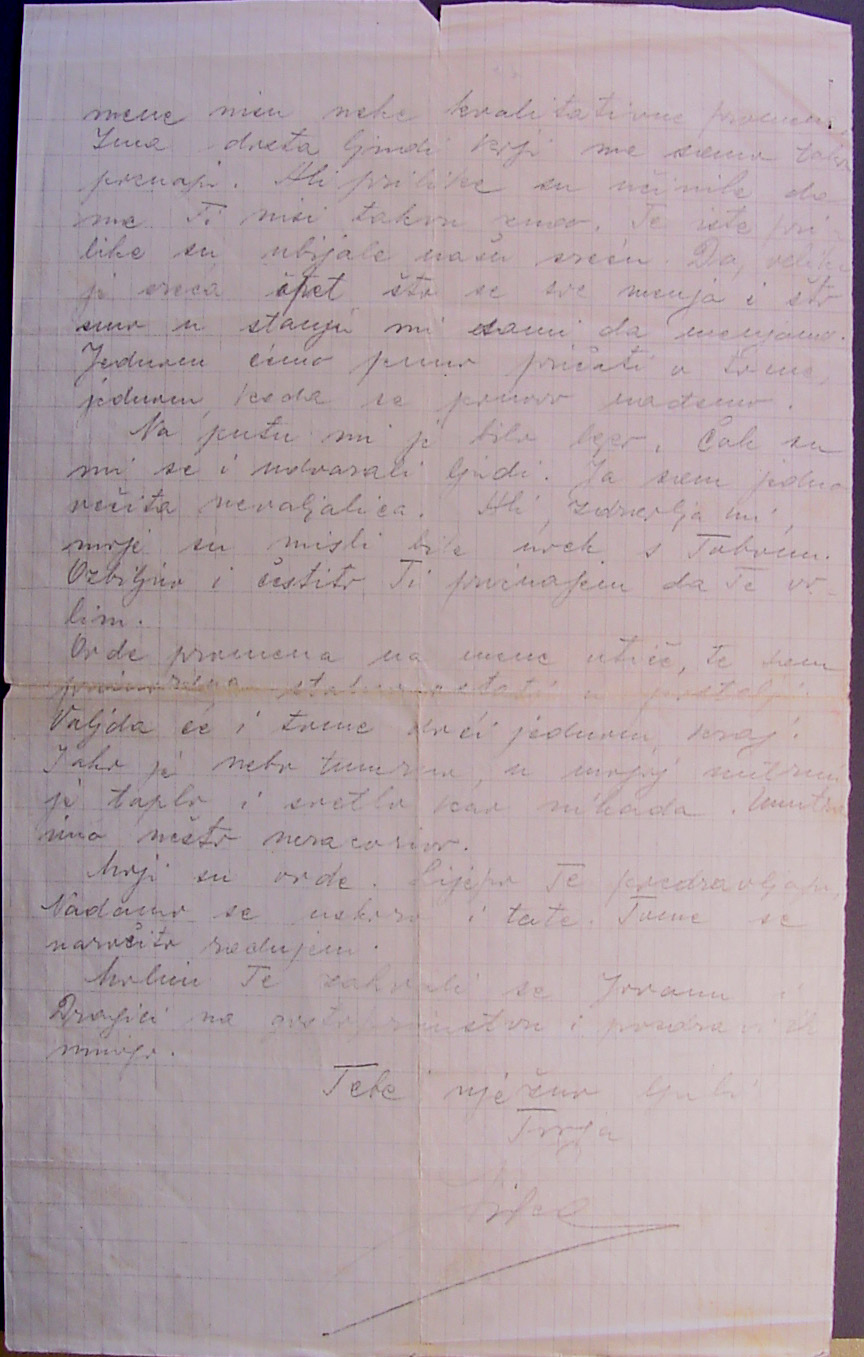 mene nisu neke kvalitativne promene.
Ima dosta ljudi koji me samo tako
poznaju. Ali prilike su učinile da
me Ti nisi takvu znao. Te iste pri-
like su ubijale našu sreću. Da, velika
je sreća opet što se sve menja i što
smo u stanju mi sami da menjamo.
Jednom ćemo puno pričati o tome,
jednom kada se ponovo nađemo.
Na putu mi je bilo lepo. Čak su
mi se i udvarali ljudi. Ja sam jedna
večita nevaljalica. Ali, zdravlja mi,
moje su misli bile uvek s Tobom.
Ozbiljno i čestito Ti priznajem da Te vo-
lim.
Ovde promena na mene utiče, te sam
stalno ostati u postelji.
Valjda će i tome doći jednom kraj!
Iako je nebo tmurno, u mojoj nutrini
je toplo i svetlo kao nikada. Unutra
ima nešto nerazorivo.
Moji su ovde. Lijepo Te pozdravljaju.
Nadamo se uskoro i tate. Tome se
naročito radujem.
Molim Te zahvali se Jovanu i
Dragici na gostoprimstvu i pozdravi ih
mnogo.
Tebe nježno ljubi
Tvoja